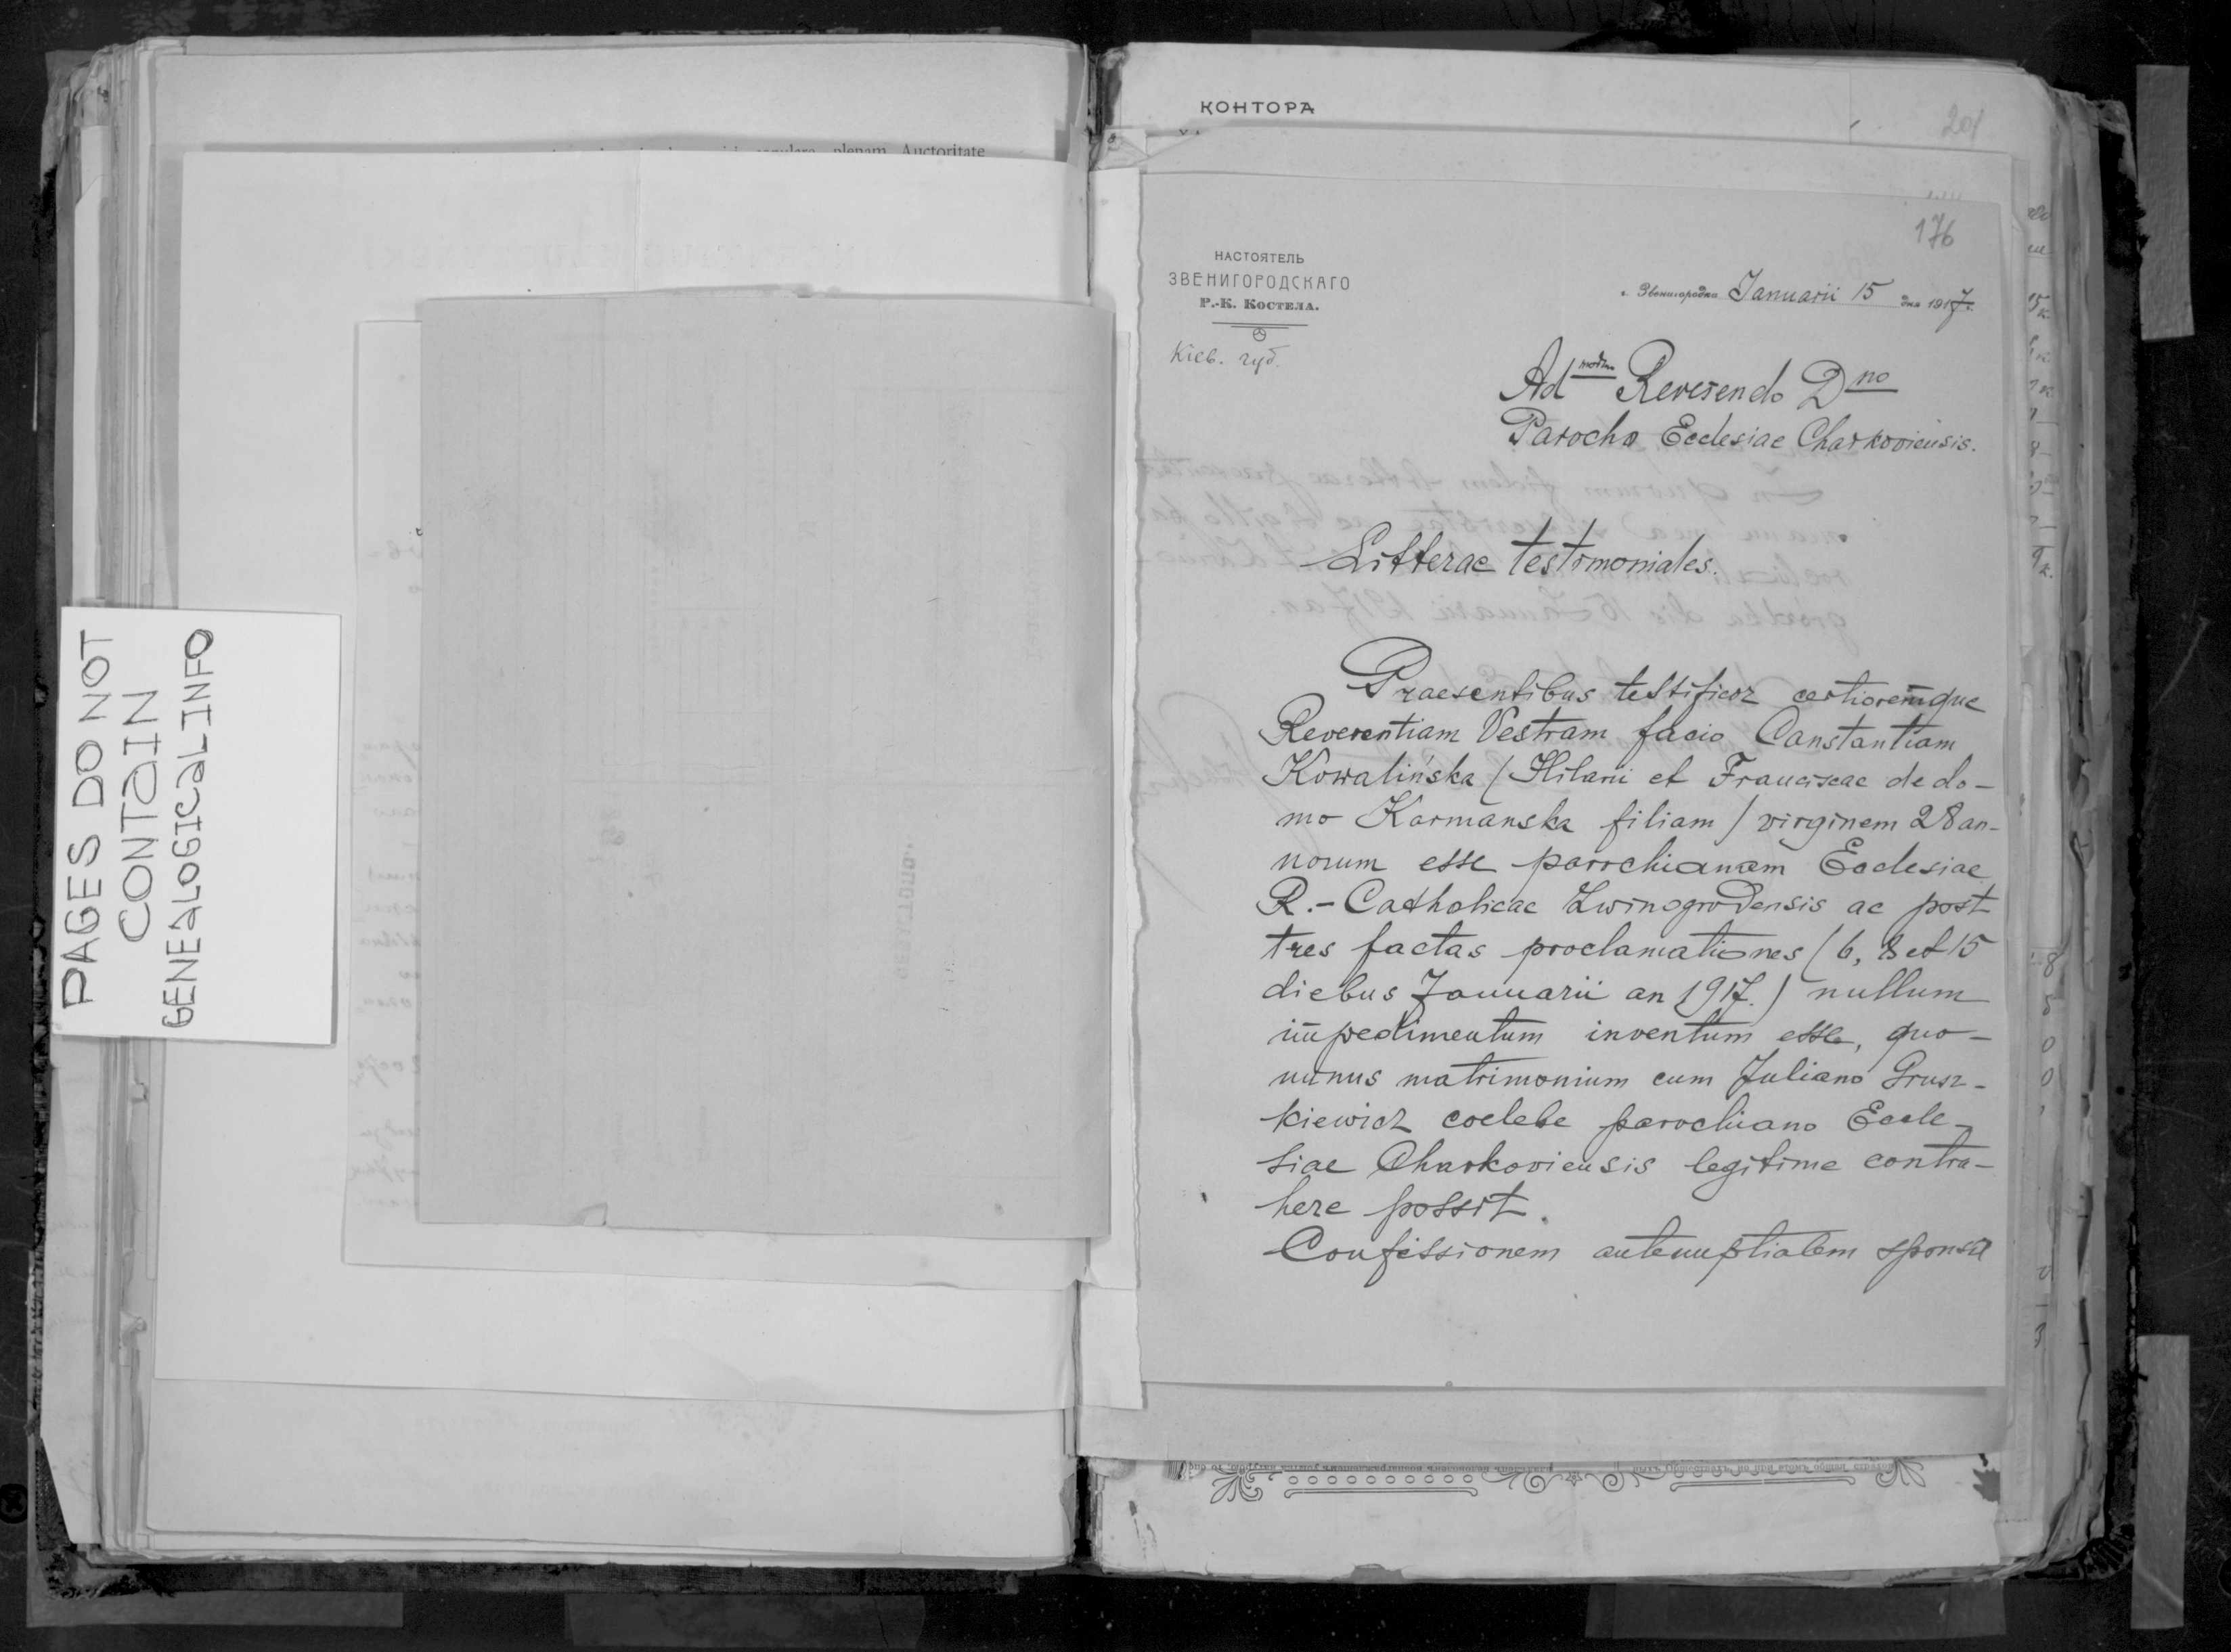 PAGES DO NOT
CONTAIN
GENEALOGICAL INFO
plenam Auctoritate
КОНТОРА
201
176
НАСТОЯТЕЛЬ
ЗВЕНИГОРОДСКАГО
Р.-К. Костела.
Кіев. губ.
г. Звенигородка Januarii 15 дня 1917 г.
Ad modm Reverendo Dno
Parocho Ecclesiae Charkoviensis.
Litterae testimoniales.
Praesentibus testificor certioremque
Reverentiam Vestram facio Constantiam
Kowalińska (Hilarii et Franciscae de do-
mo Karmanska filiam) virginem 28 an-
norum esse parochianam Ecclesiae
R.-Catholicae Zwinogrodensis ac post
tres factas proclamationes (6, 8 et 15
diebus Januarii an 1917.) nullum
impedimentum inventum esse, quo-
minus matrimonium cum Juliano Grusz-
kiewicz coelebe parochiano Eccle-
siae Charkoviensis legitime contra-
here possit.
Confessionem antenuptialem sponsa